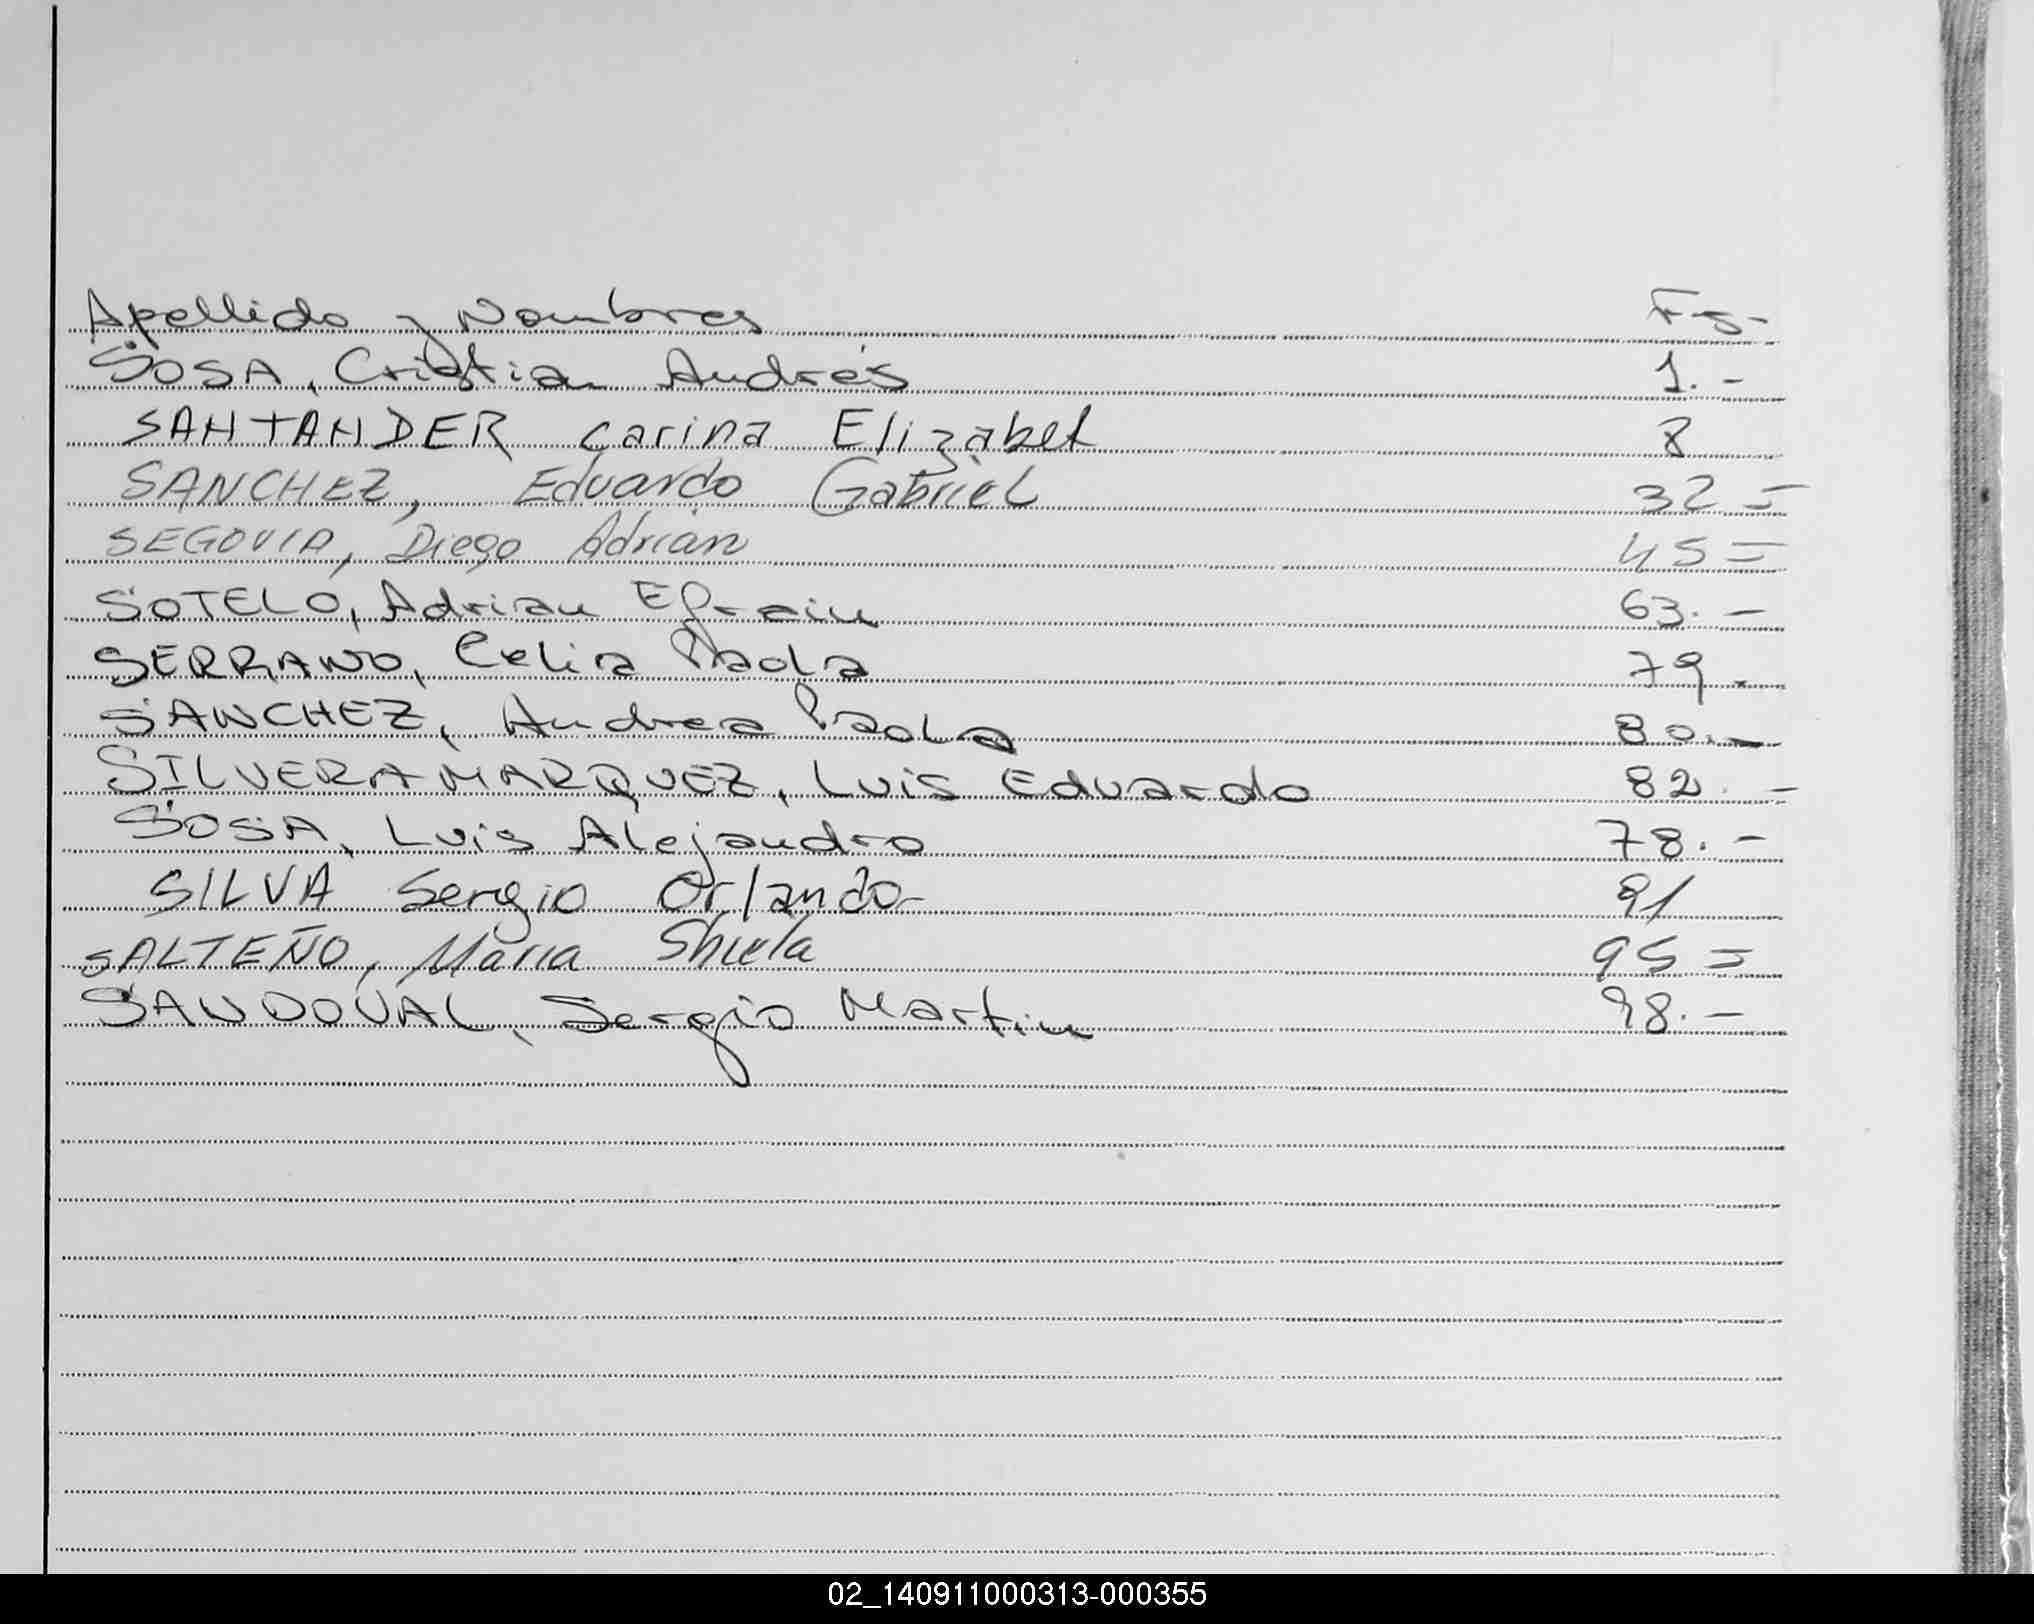 Apellido y Nombres Fs.-
SOSA, Cristian Andrés 1.-
SANTANDER Carina Elizabet 8
SANCHEZ, Eduardo Gabriel 32=
SEGOVIA, Diego Adrián 45=
SOTELO, Adrian Efrain 63.-
SERRANO, Celia Paola 79.
SANCHEZ, Andrea Paola 80.-
SILVERA MARQUEZ, Luis Eduardo 82.-
SOSA, Luis Alejandro 78.-
SILVA Sergio Orlando- 91
SALTEÑO, María Shiela 95=
SANDOVAL, Sergio Martin 98.-
02_140911000313-000355